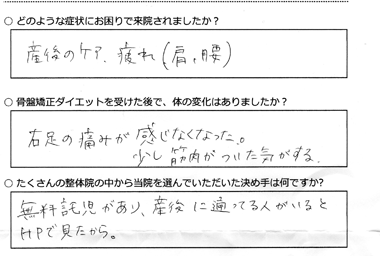 ○ どのような症状にお困りで来院されましたか?
産後のケア、疲れ(肩、腰)
○ 骨盤矯正ダイエットを受けた後で、体の変化はありましたか?
右足の痛みが感じなくなった。
少し筋肉がついた気がする。
○ たくさんの整体院の中から当院を選んでいただいた決め手は何ですか?
無料託児があり、産後に通ってる人がいると
HPで見たから。